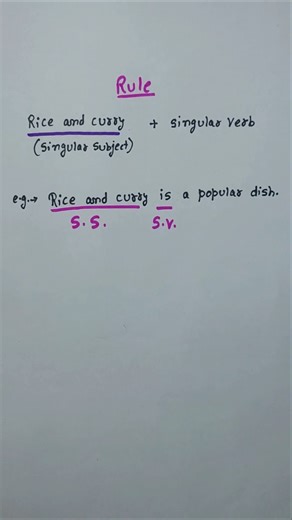 Rule
Rice and curry + singular verb
(Singular Subject)
e.g.→ Rice and curry is a popular dish.
S.S. S.V.